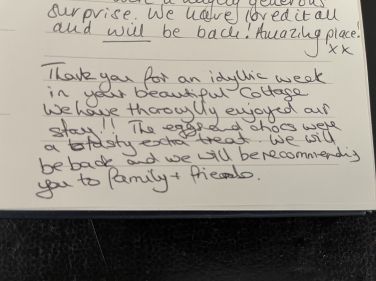 a generous
surprise. We have loved it all
and will be back! Amazing place!
xx
Thank you for an idyllic week
in your beautiful Cottage
We have thoroughly enjoyed our
stay!! The eggs and chocs were
a tasty extra treat. We will
be back and we will be recommending
you to family + friends.